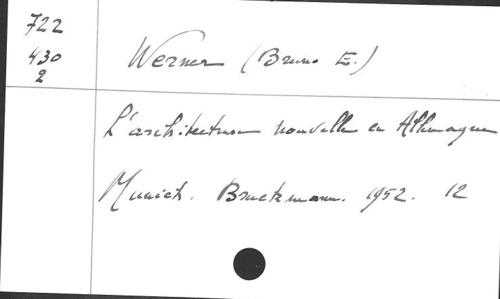 722
430
2
Werner (Bruno E.)
L'architecture nouvelle en Allemagne
Munich. Bruckmann. 1952. 12